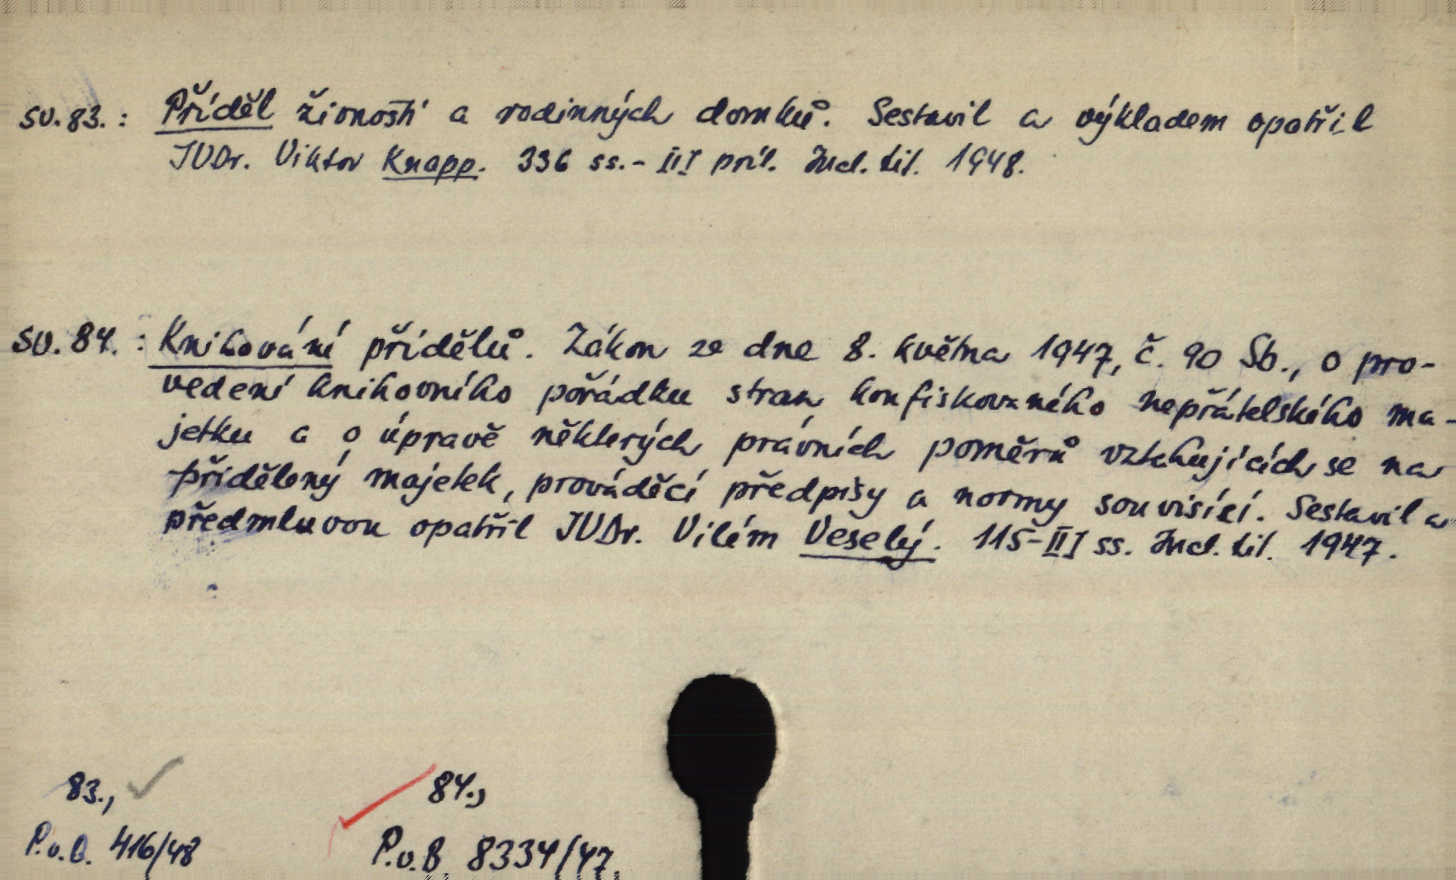 sv. 83.: Příděl živností a rodinných domků. Sestavil a výkladem opatřil
JUDr. Viktor Knapp. 336 ss. - III príl. Incl. tit. 1948.
sv. 84.: Knihování přídělů. Zákon ze dne 8. května 1947, č. 90 Sb., o pro-
vedení knihovního pořádku stran konfiskovaného nepřátelského ma-
jetku a o úpravě některých právních poměrů vztahujících se na
přidělený majetek, prováděcí předpisy a normy souvisící. Sestavil a
předmluvou opatřil JUDr. Vilém Veselý. 115-III ss. Incl. tit. 1947.
83., 84.,
P.v.B. 416/48 P.v.B. 8334/47.